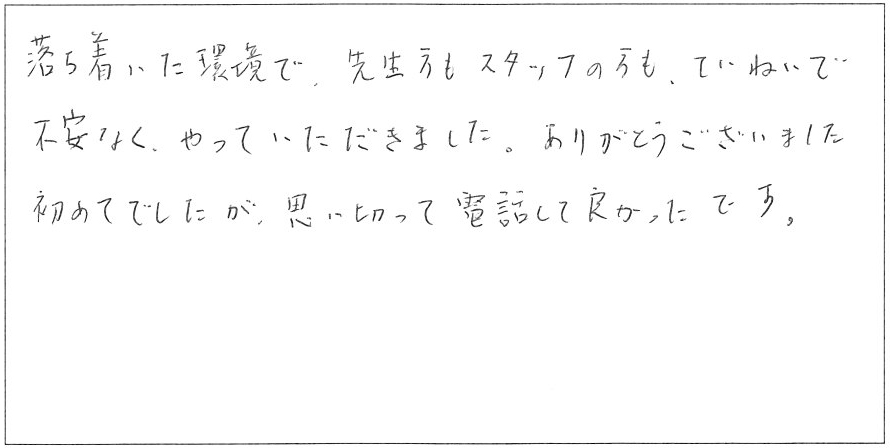 落ち着いた環境で、先生方もスタッフの方も、ていねいで
不安なく、やっていただきました。ありがとうございました
初めてでしたが、思い切って電話して良かったです。